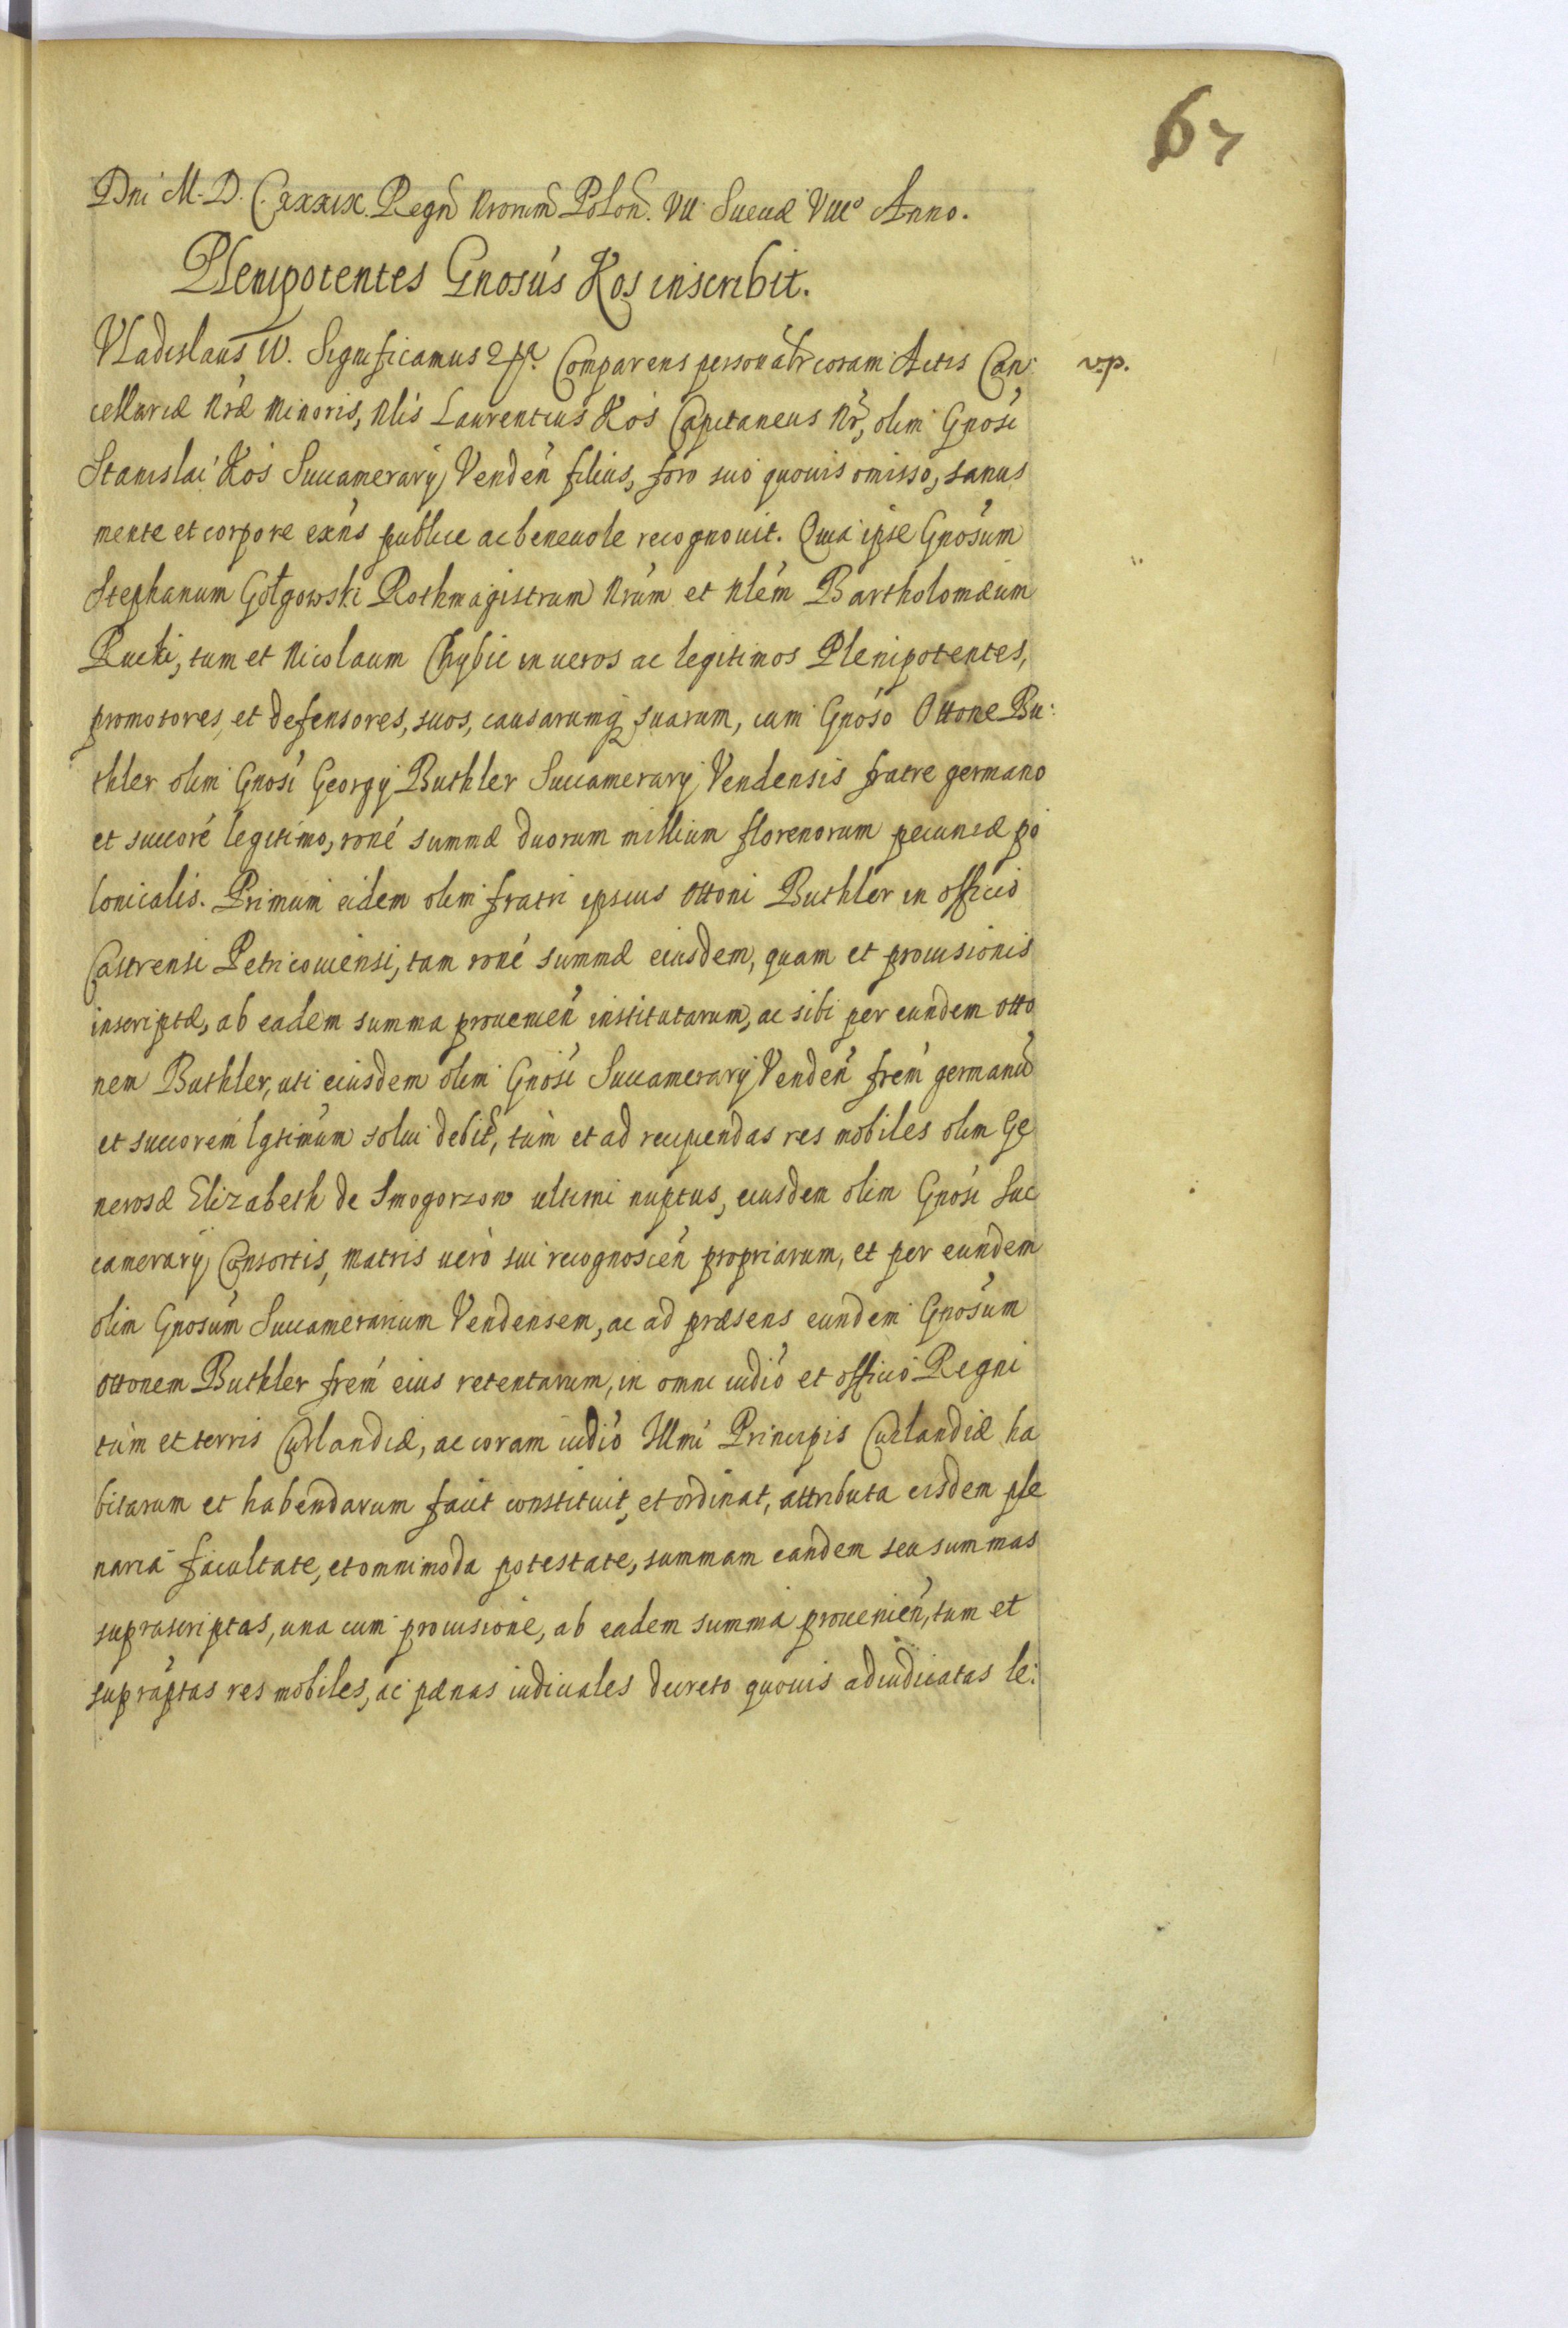 67
Dni M. D. C. XXXIX. Regn Nrorum Polon. VII. Sueciæ VIIIo Anno.
Plenipotentes Gnosus Kos inscribit.
Vladislaus IV. Significamus &c Comparens personalr coram Actis Can:
v.p.
cellariæ Nræ Minoris, Nlis Laurentius Kos Capitaneus Nr, olim Gnosi
Stanislai Kos Succamerarij Venden filius, foro suo quouis omisso, sanus
mente et corpore exns publice ac beneuole recognouit. Quia ipse Gnosum
Stephanum Gołgowski Rothmagistrum Nrum et Nlem Bartholomæum
Rucki, tum et Nicolaum Chybic in ueros ac legitimos Plenipotentes,
promotores, et defensores, suos, causarumq suarum, cum Gnoso Ottone Bu:
thler olim Gnosi Georgij Buthler Succamerarij Vendensis fratre germano
et succore legitimo, rone summæ duorum millium florenorum pecuniæ po
lonicalis. Primum eidem olim fratri ipsius Ottoni Buthler in officio
Castrensi Petricouiensi, tam rone summæ eiusdem, quam et prouisionis
inscriptæ, ab eadem summa prouenien institutarum, ac sibi per eundem Otto
nem Buthler, uti eiusdem olim Gnosi Succamerarij Venden frem germanu
et succorem lgtimum solui debit, tum et ad recipiendas res mobiles olim Ge
nerosæ Elizabeth de Smogorzow ultimi nuptus, eiusdem olim Gnosi Suc
camerarij Consortis, Matris uero sui recognoscen propriarum, et per eundem
olim Gnosum Succamerarium Vendensem, ac ad præsens eundem Gnosum
Ottonem Buthler frem eius retentarum, in omni iudio et officio Regni
tum et terris Curlandiæ, ac coram iudio Illmi Principis Curlandiæ ha
bitarum et habendarum facit constituit, et ordinat, attributa eisdem ple
naria facultate, et omnimoda potestate, summam eandem seu summas
suprascriptas, una cum prouisione, ab eadem summa prouenien, tum et
supraptas res mobiles, ac pænas iudiciales decreto quouis adiudicatas le: